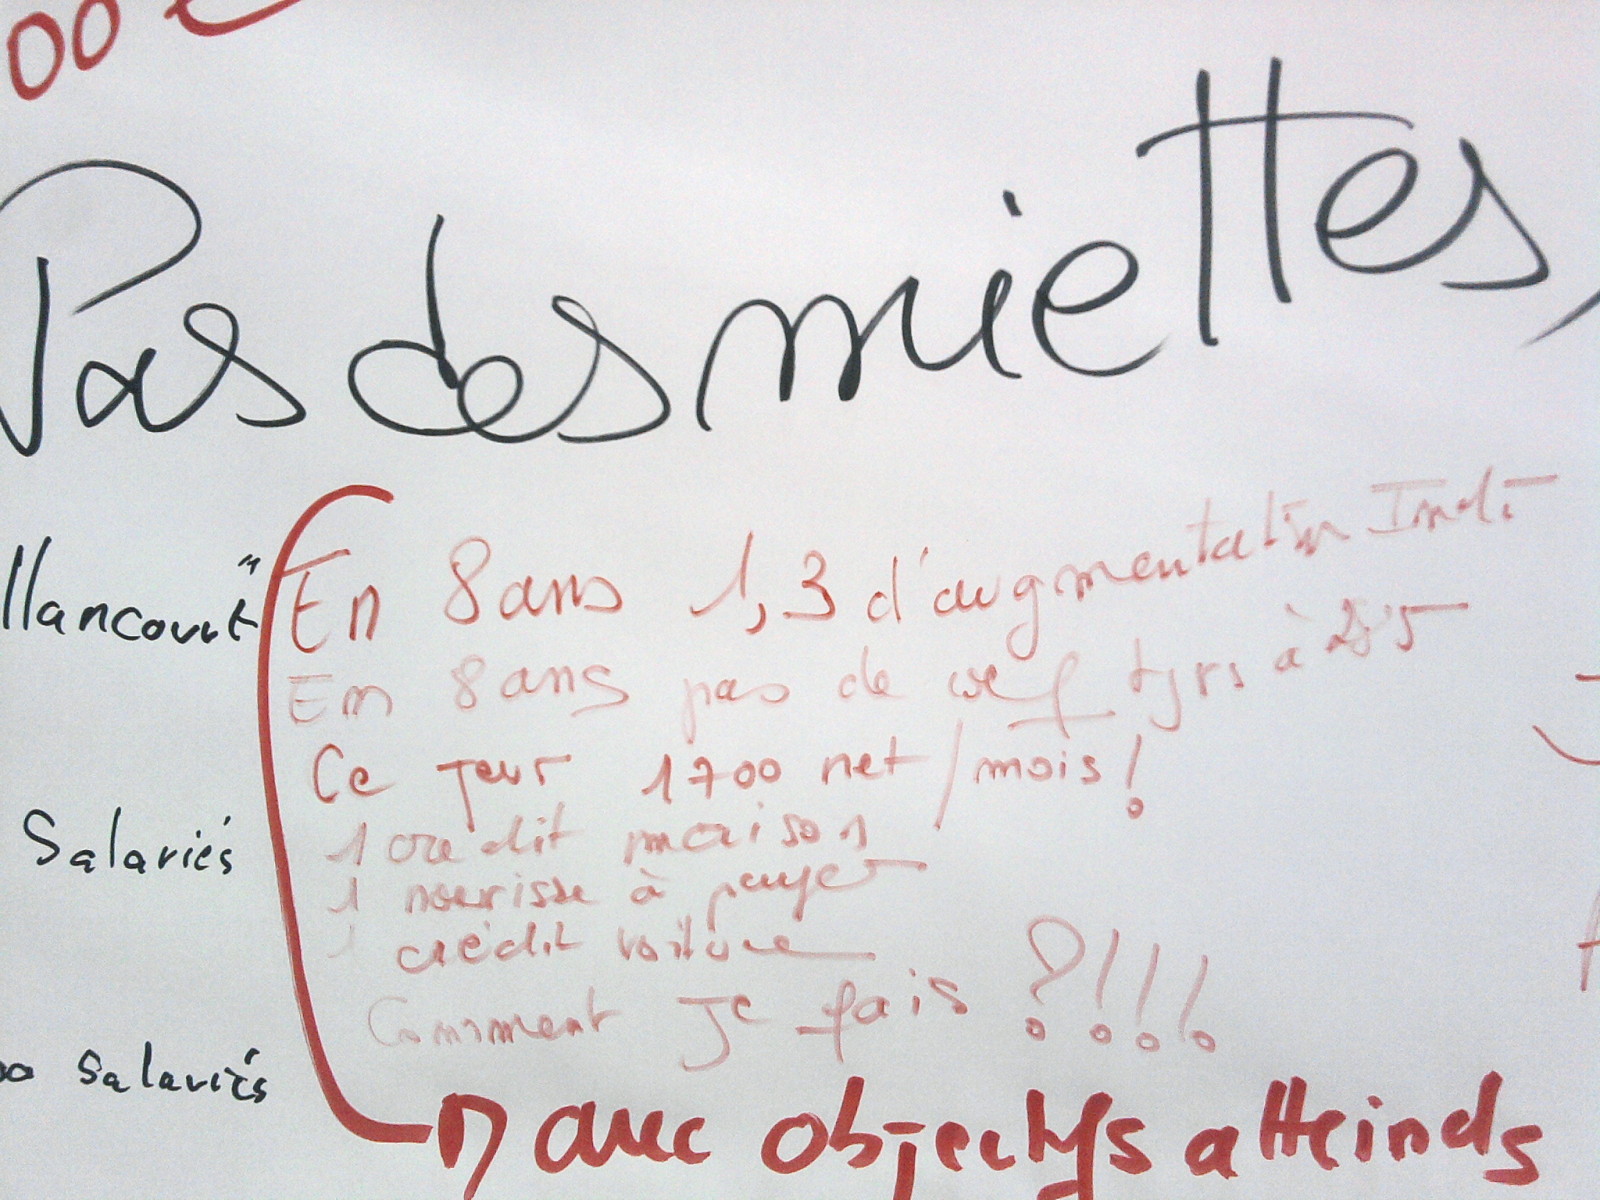 00 €
Pas des miettes,
llancourt"
En 8 ans 1,3 d'augmentation Indi
En 8 ans pas de coef tjrs à 215
Ce jour 1700 net/mois!
1 crédit maison
Salariés
1 nourisse à payer
1 crédit voiture
Comment je fais ?!!!
salariés
avec objectifs atteinds